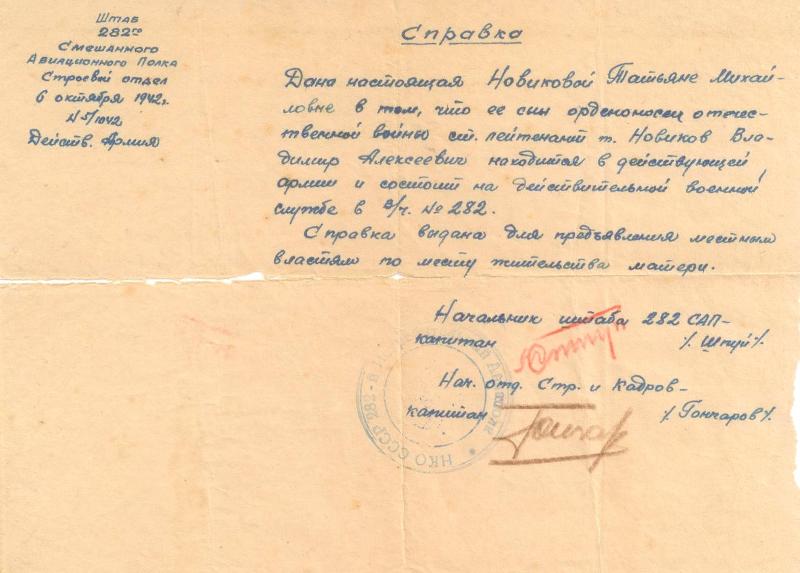 Штаб
282го
Смешанного
Авиационного Полка
Строевой отдел
6 октября 1942г.
N 5/1042
Действ. Армия
Справка
Дана настоящая Новиковой Татьяне Михай-
ловне в том, что ее сын орденоносец отече-
ственной войны ст. лейтенант т. Новиков Вла-
димир Алексеевич находится в действующей
армии и состоит на действительной военной
службе в в/ч. № 282.
Справка выдана для предъявления местным
властям по месту жительства матери.
Начальник штаба 282 САП-
капитан /. Шпуй /.
Нач. отд. Стр. и Кадров-
капитан /. Гончаров /.
Гончар
НКО СССР 282-й